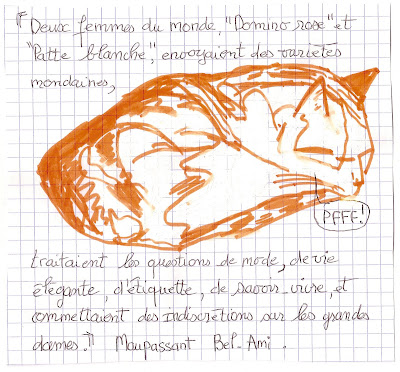 " Deux femmes du monde, "Domino rose" et
"Patte blanche", envoyaient des variétés
mondaines,
PFFF!
traitaient les questions de mode, de vie
élégante, d'étiquette, de savoir-vivre, et
commettaient des indiscrétions sur les grandes
dames." Maupassant Bel-Ami.